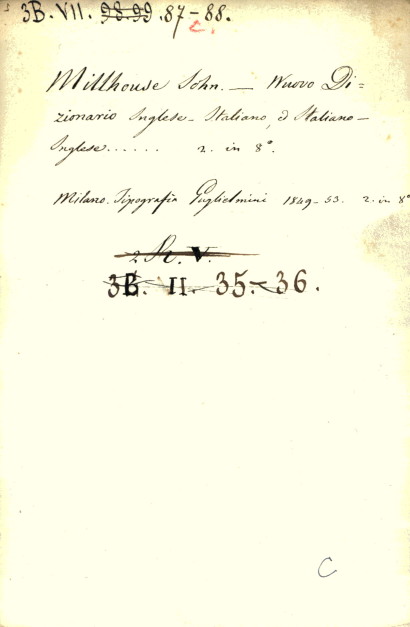 3B. VII. 98.99 .87-88.
c.
Millhouse John. — Nuovo Di=
zionario Inglese - Italiano, ed Italiano -
Inglese...... 2. in 8°.
Milano. Tipografia Guglielmini 1849-53. 2. in 8°
2 R. V.
3B. II. 35.-36.
C